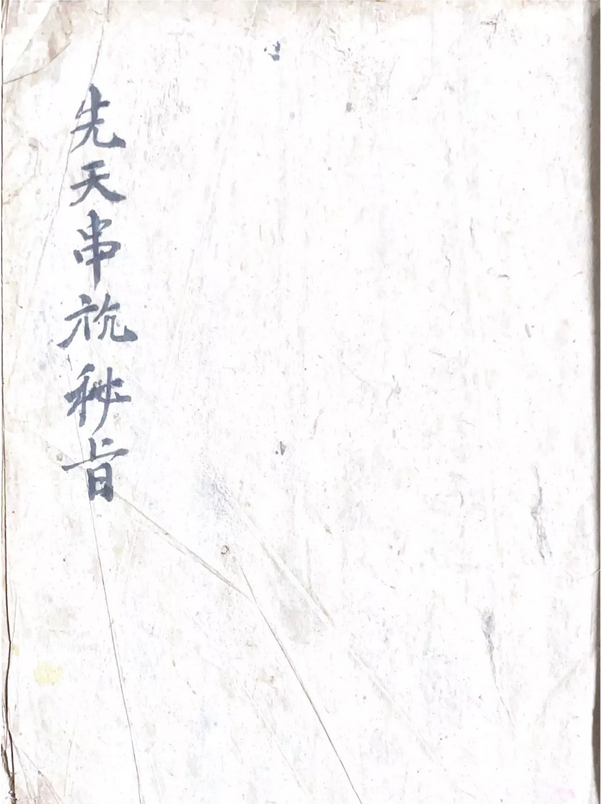 先天串秘旨